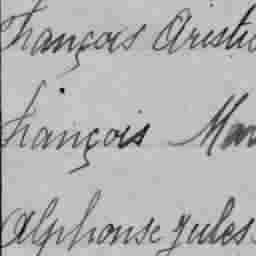 François Aristi
François Mar
Alphonse Jules